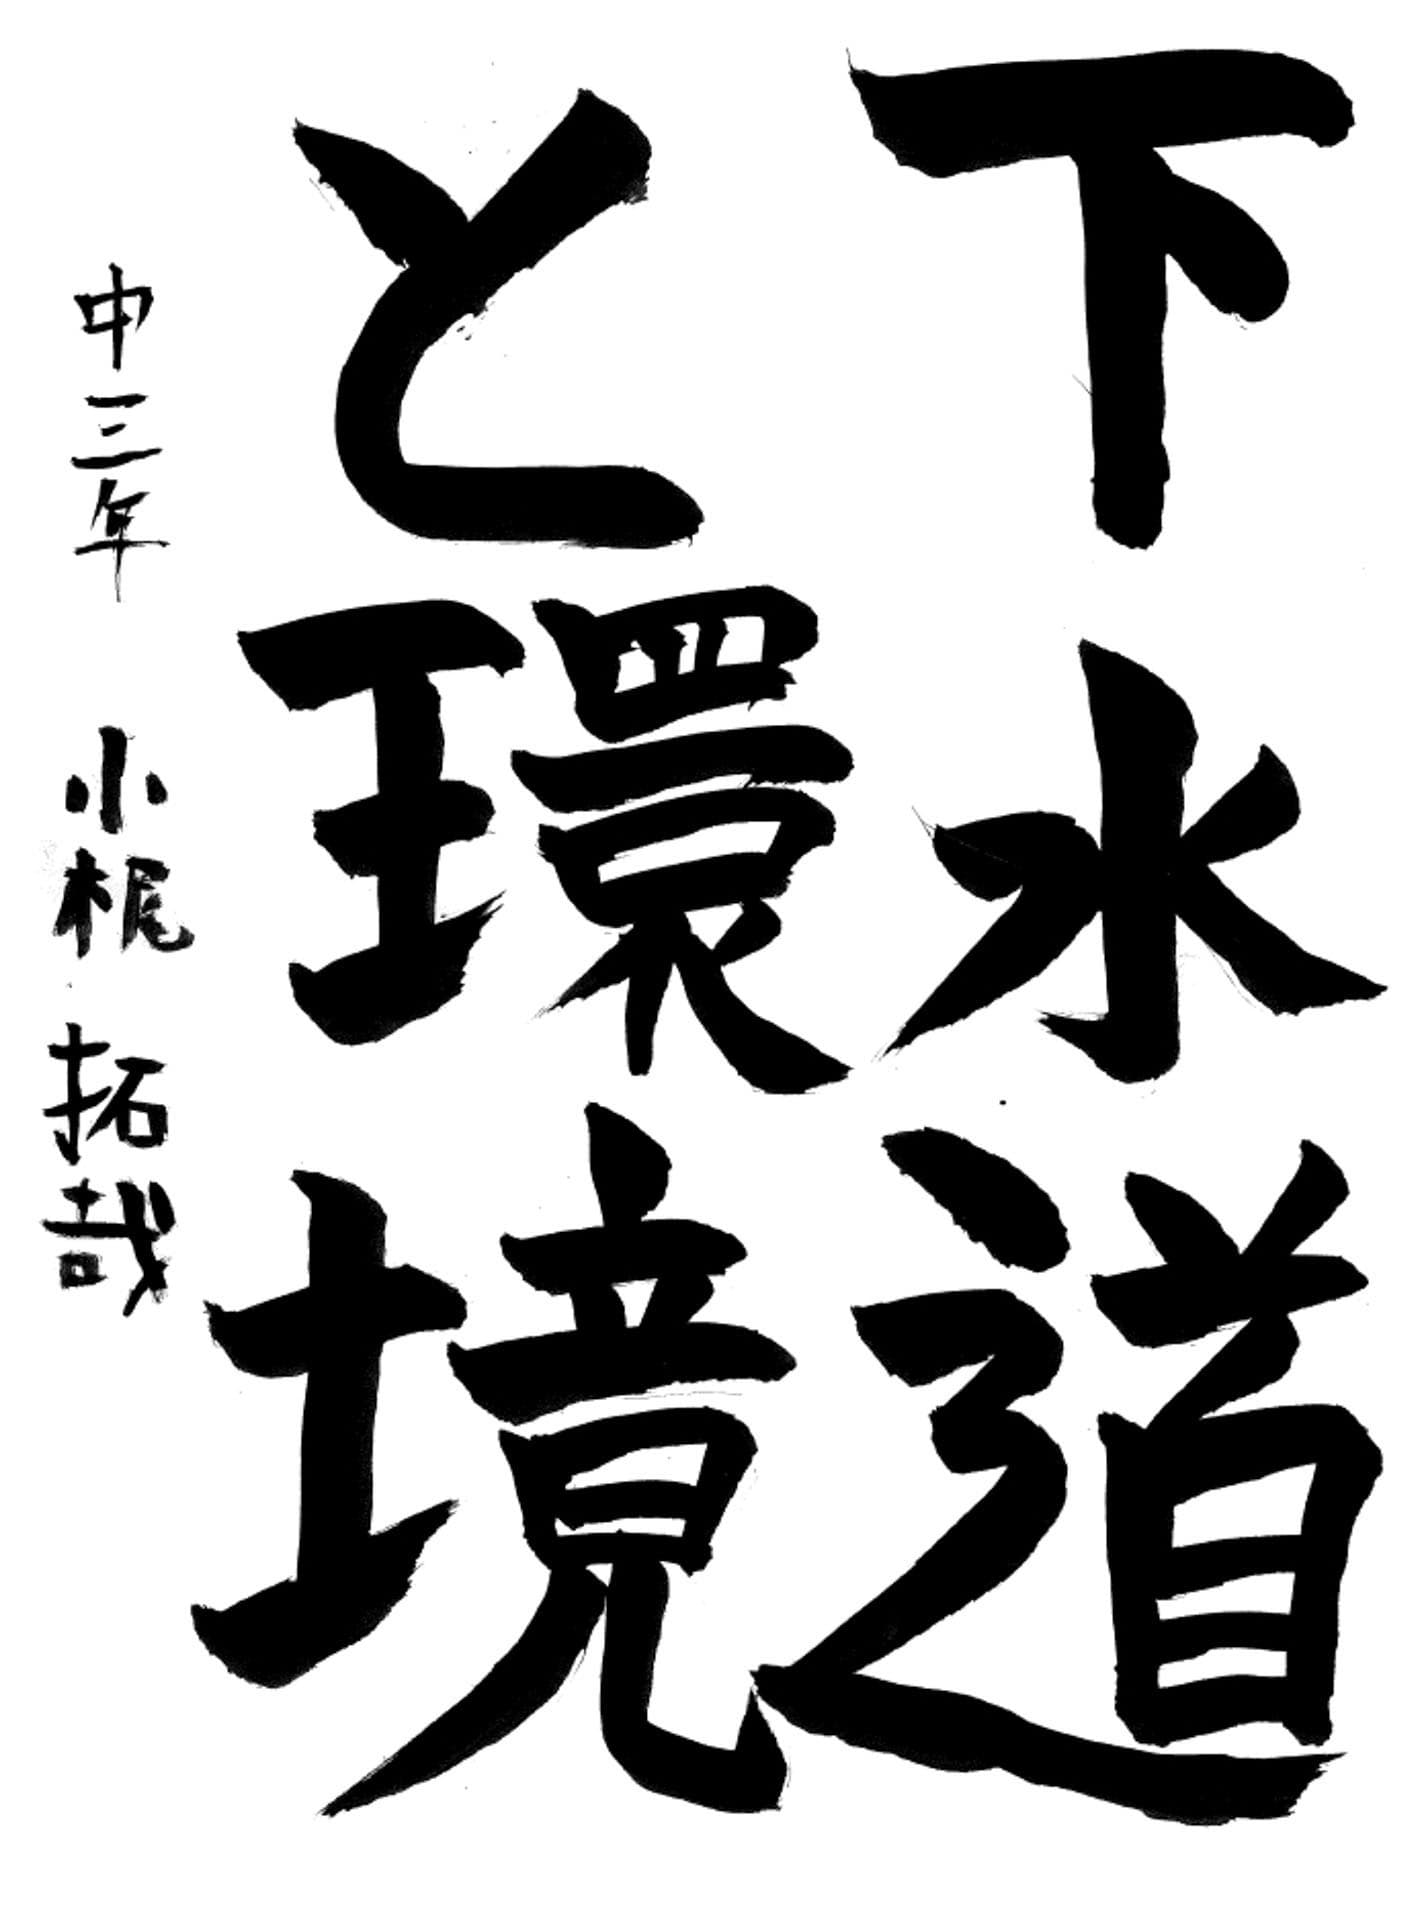 下水道
と環境
中三年 小梶 拓哉